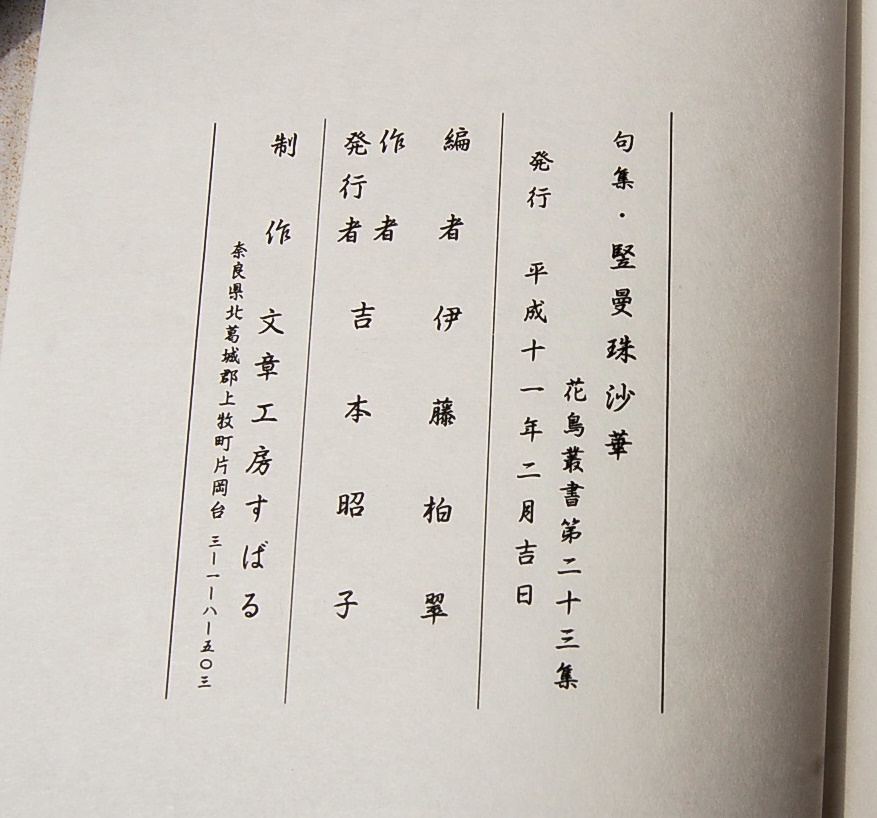 句集・竪曼珠沙華
花鳥叢書第二十三集
発行 平成十一年二月吉日
編者 伊藤柏翠
作者
発行者 吉本昭子
制作 文章工房すばる
奈良県北葛城郡上牧町片岡台 三ー一ー八ー五〇三